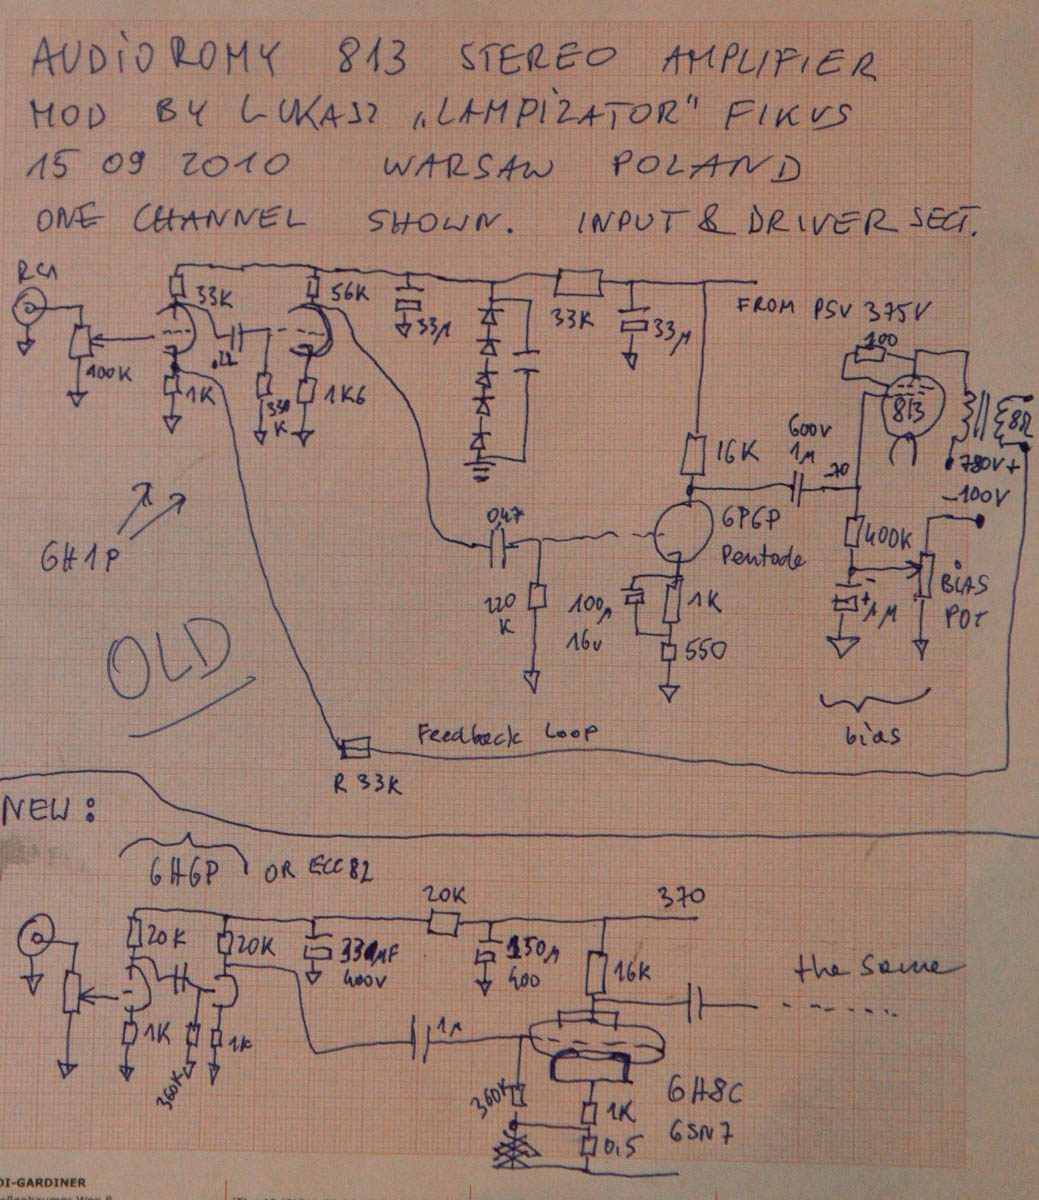 AUDIOROMY 813 STEREO AMPLIFIER
MOD BY LUKASZ „LAMPIZATOR" FIKUS
15 09 2010 WARSAW POLAND
ONE CHANNEL SHOWN. INPUT & DRIVER SECT.
RCA
33K
56K
33µ
33K
33µ
FROM PSU 375V
100
100K
.22
1K
330
K
1K6
813
8Ω
600V
1µ
-70
780V+
-100V
16K
6H1P
047
6P6P
Pentode
400K
BIAS
POT
220
K
100µ
16V
1K
+ -
1M
550
OLD
bias
Feedback LOOP
R 33K
NEW:
6H6P OR ECC82
20K
370
20K
20K
330µF
400V
150µ
400
16K
the same
1K
360K
1K
1µ
360K
1K
0,5
6H8C
6SN7
DI-GARDINER